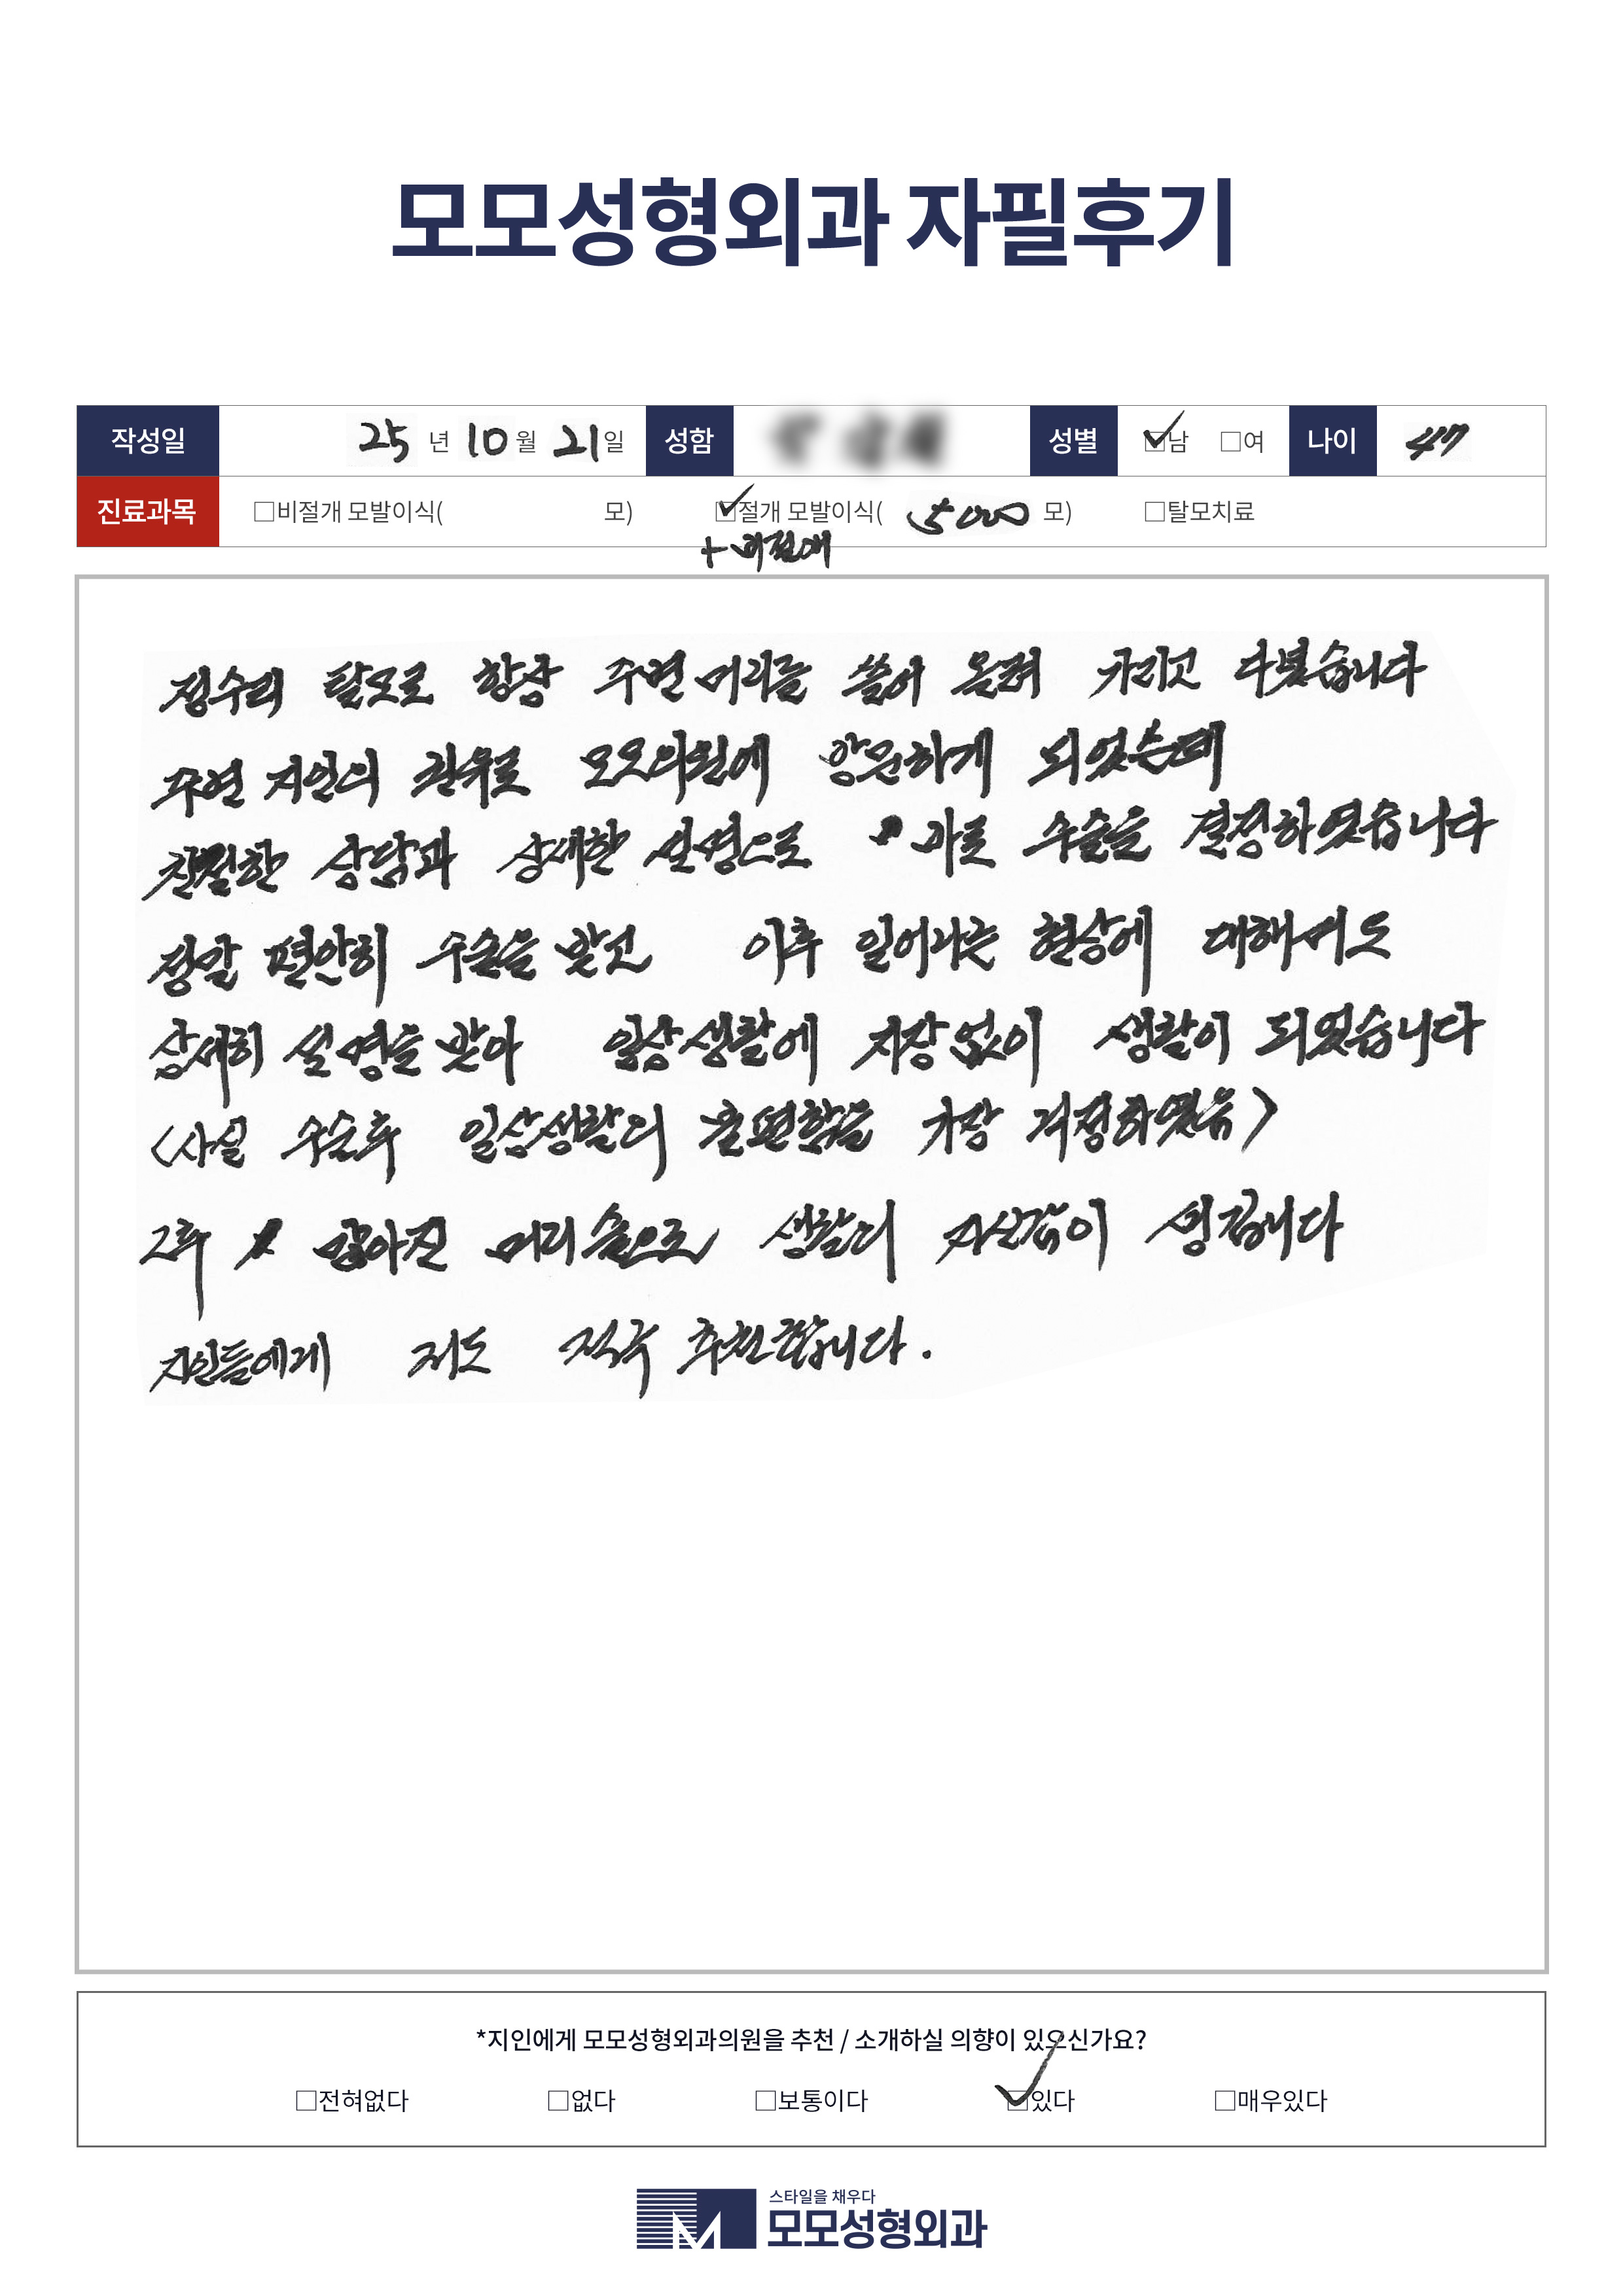 모모성형외과 자필후기
작성일 25 년 10 월 21 일 성함 성별 ☑남 □여 나이 47
진료과목 □비절개 모발이식( 모) ☑절개 모발이식( 5000 모) □탈모치료
+비절개
정수리 탈모로 항상 주변 머리를 쓸어 올려 가리고 다녔습니다
주변 지인의 권유로 모모의원에 방문하게 되었는데
친절한 상담과 상세한 설명으로 바로 수술을 결정하였습니다
정말 편안히 수술을 받고 이후 일어나는 현상에 대해서도
상세히 설명을 받아 일상생활에 지장없이 생활이 되었습니다
(사실 수술후 일상생활의 불편함을 가장 걱정하였음)
그후 많아진 머리숱으로 생활의 자신감이 생깁니다
지인들에게 저도 적극 추천합니다.
*지인에게 모모성형외과의원을 추천 / 소개하실 의향이 있으신가요?
□전혀없다 □없다 □보통이다 ☑있다 □매우있다
스타일을 채우다
모모성형외과